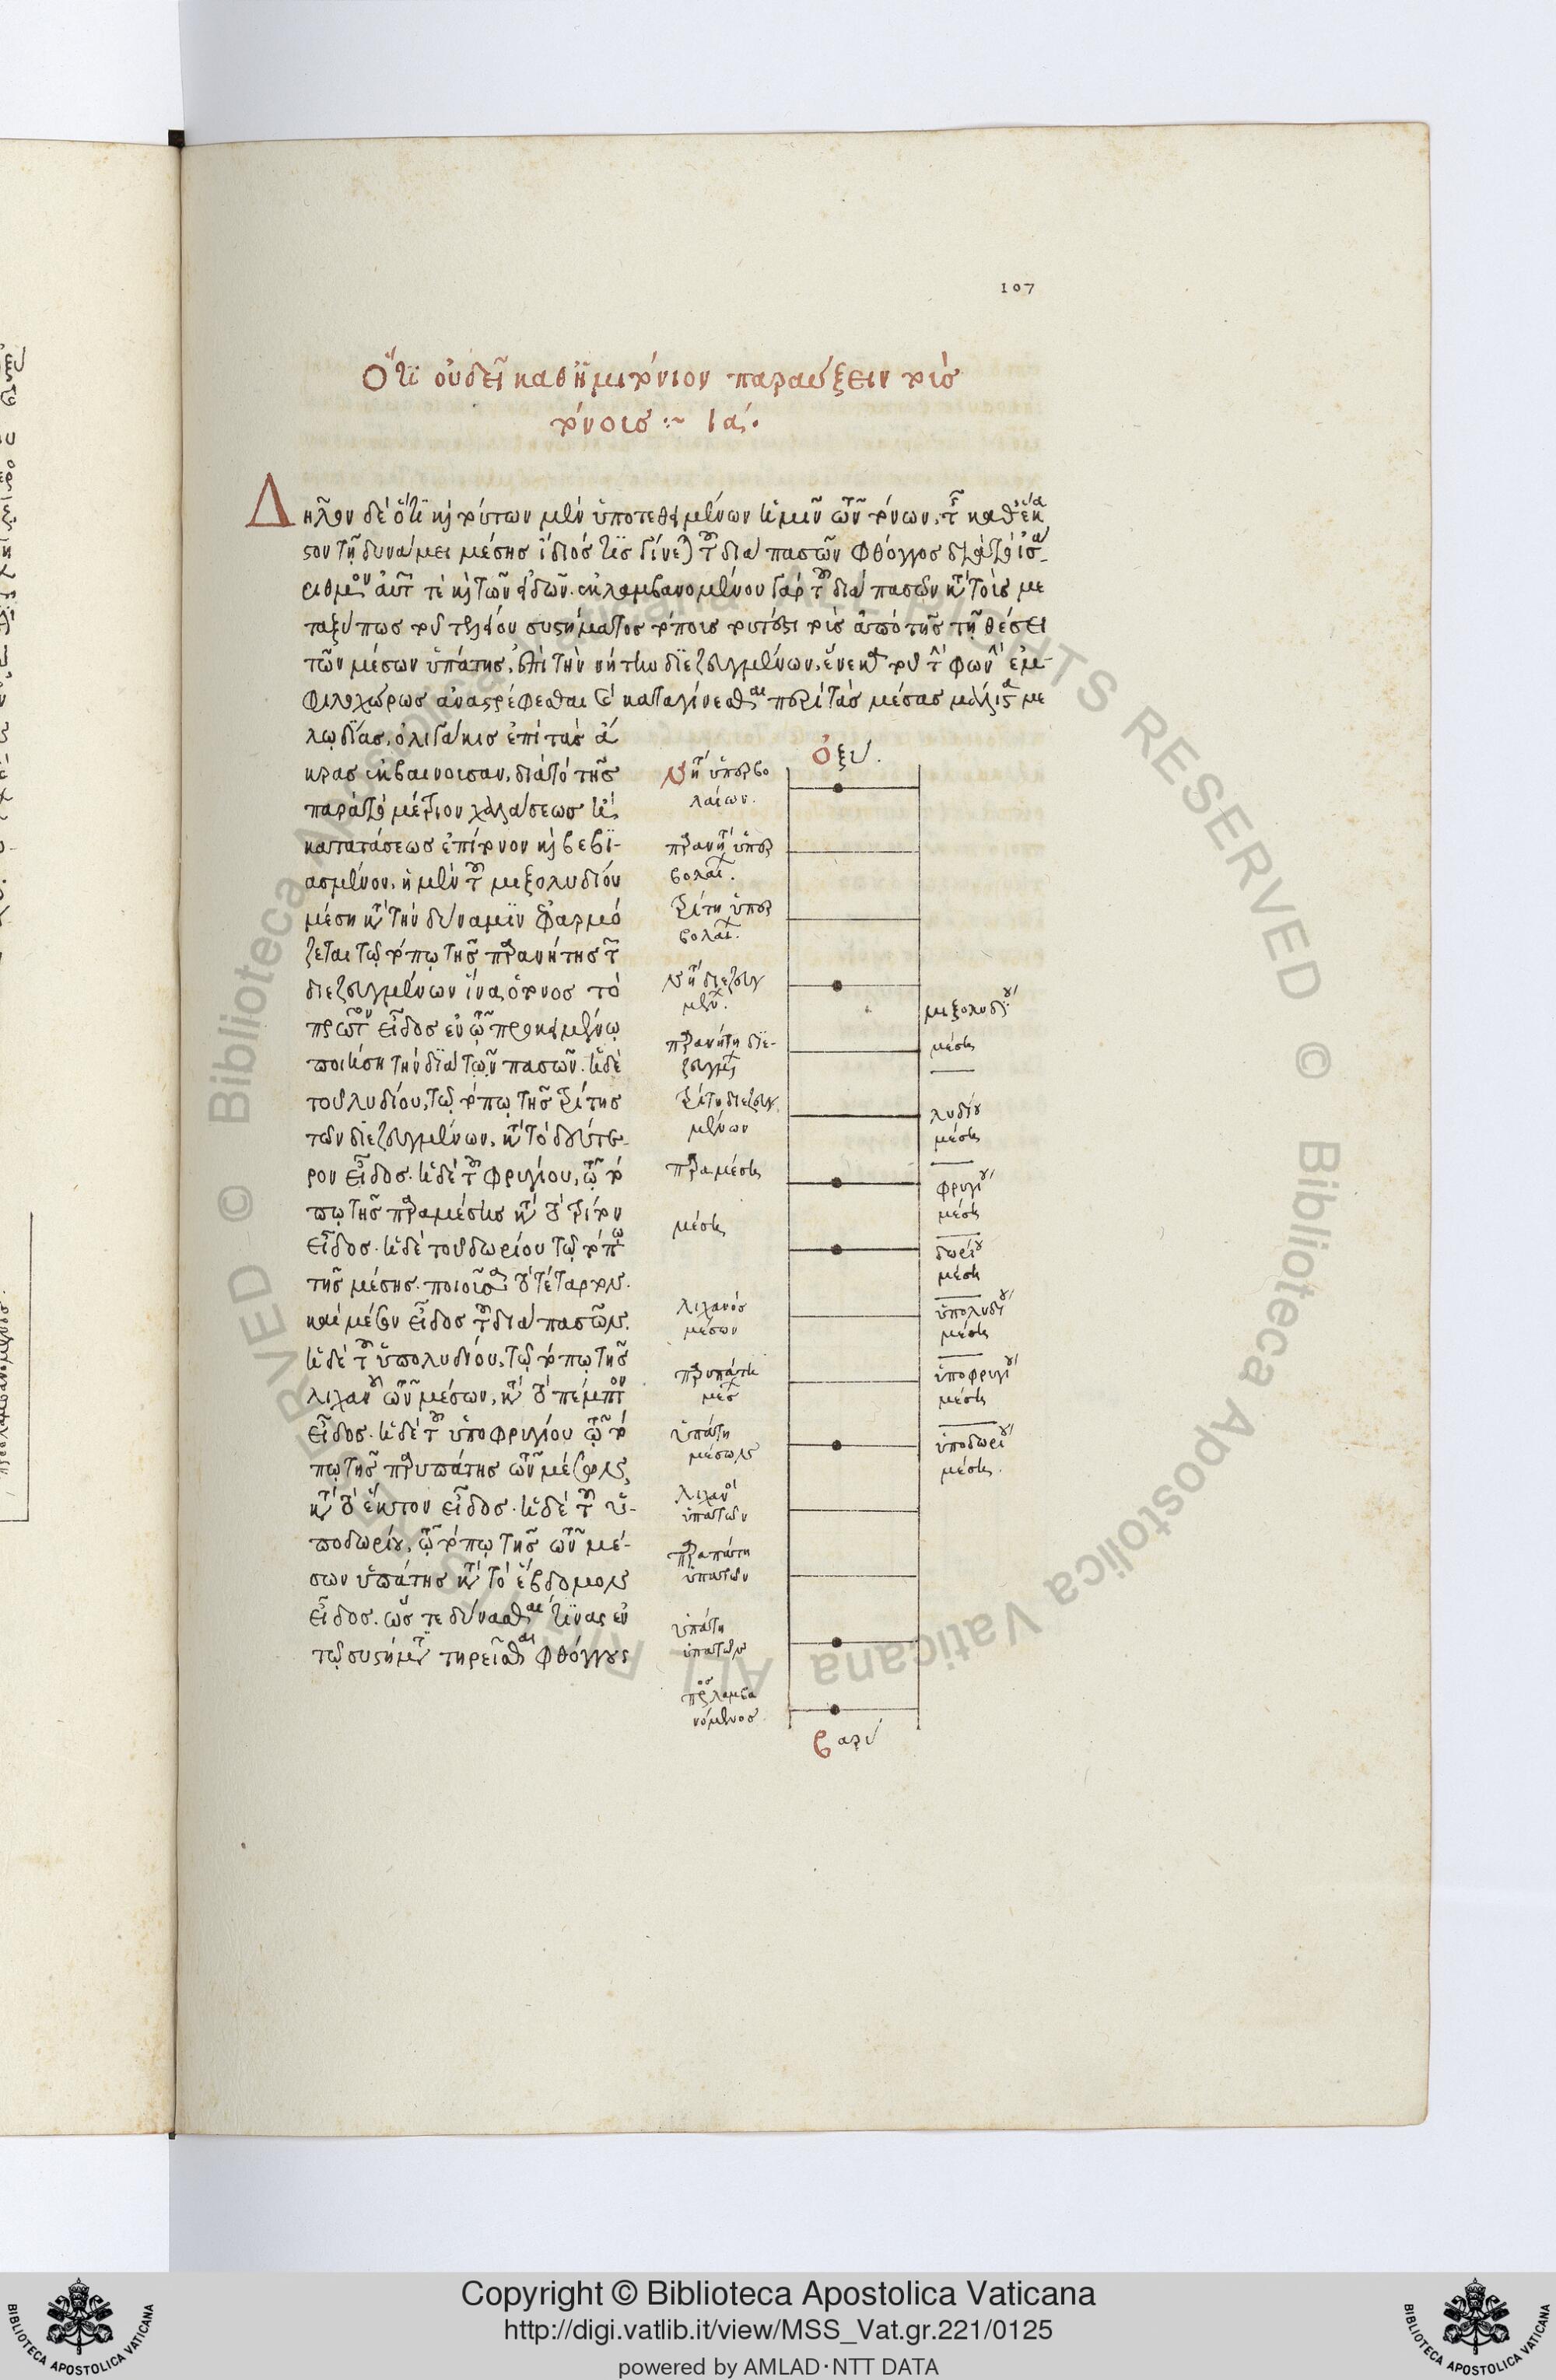 107
Ὅτι οὐ δεῖ καθ' ἡμιτόνιον παραύξειν τοὺς
τόνους :~ ια.
Δῆλον δὲ ὅτι καὶ τούτων μὲν ὑποτεθειμένων ἡμῖν τῶν τόνων, τῆς καθ' ἕκα
στον τῇ δυνάμει μέσης ἴδιός τις γίνεται τοῦ διὰ πασῶν φθόγγος διὰ τὸ ἰσά-
ριθμον αὐτῶν τε καὶ τῶν εἰδῶν. ἐκλαμβανομένου γὰρ τοῦ διὰ πασῶν κατὰ τοὺς με
ταξύ πως τοῦ τελείου συστήματος τόπους τουτέστι τοὺς ἀπὸ τῆς τῇ θέσει
τῶν μέσων ὑπάτης, ἐπὶ τὴν νήτην διεζευγμένων, ἕνεκα τοῦ τὴν φωνὴν ἐμ-
φιλοχώρως ἀναστρέφεσθαι καὶ καταγίνεσθαι περὶ τὰς μέσας μάλιστα με
λῳδίας, ὀλιγάκις ἐπὶ τὰς ἄ
κρας ἐκβαίνουσαν, διὰ τὸ τῆς
παρὰ τὸ μέτριον χαλάσεως ἢ
κατατάσεως ἐπίπονον καὶ βεβι-
ασμένον, ἡ μὲν τοῦ μιξολυδίου
μέση κατὰ τὴν δύναμιν ἐφαρμό
ζεται τῷ τόπῳ τῆς παρανήτης τῶν
διεζευγμένων ἵνα ὁ τόνος τὸ
πρῶτον εἶδος ἐν τῷ προκειμένῳ
ποιήσῃ τὴν διὰ τῶν πασῶν. ἡ δὲ
τοῦ λυδίου, τῷ τόπῳ τῆς τρίτης
τῶν διεζευγμένων, κατὰ τὸ δεύτε-
ρον εἶδος. ἡ δὲ τοῦ φρυγίου, τῷ τό
πῳ τῆς παραμέσης κατὰ τὸ τρίτον
εἶδος. ἡ δὲ τοῦ δωρίου τῷ τόπῳ
τῆς μέσης. ποιοῦσα τὸ τέταρτον.
καὶ μέσον εἶδος τοῦ διὰ πασῶν.
ἡ δὲ τοῦ ὑπολυδίου, τῷ τόπῳ τῆς
λιχανοῦ τῶν μέσων, κατὰ τὸ πέμπτον
εἶδος. ἡ δὲ τοῦ ὑποφρυγίου τῷ τό
πῳ τῆς παρυπάτης τῶν μέσων,
κατὰ τὸ ἕκτον εἶδος. ἡ δὲ τοῦ ὑ-
ποδωρίου, τῷ τόπῳ τῆς τῶν μέ-
σων ὑπάτης κατὰ τὸ ἕβδομον
εἶδος. ὥστε δύνασθαι τινας ἐν
τῷ συστήματι τηρεῖσθαι φθόγγους
ὀξύ.
νήτη ὑπερβο
λαίων.
παρανήτη ὑπερ
βολαίων.
τρίτη ὑπερ
βολαίων.
νήτη διεζευγ
μένων.
παρανήτη διε-
ζευγμένων
τρίτη διεζευγ
μένων
παραμέση
μέση
λιχανὸς
μέσων
παρυπάτη
μέσων
ὑπάτη
μέσων
λιχανὸς
ὑπατῶν
παρυπάτη
ὑπατῶν
ὑπάτη
ὑπατῶν
προσλαμβα
νόμενος
βαρύ
μιξολυδίου
μέση
λυδίου
μέση
φρυγίου
μέση
δωρίου
μέση
ὑπολυδίου
μέση
ὑποφρυγίου
μέση
ὑποδωρίου
μέση.
Copyright © Biblioteca Apostolica Vaticana
http://digi.vatlib.it/view/MSS_Vat.gr.221/0125
powered by AMLAD·NTT DATA